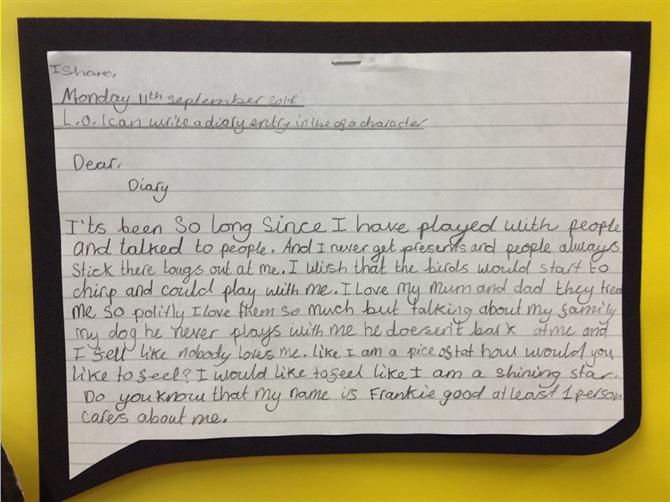 Ishara,
Monday 11th september 2014
L.O. I can write a diary entry in the of a character
Dear,
Diary
I'ts been So long Since I have played with people
and talked to people. And I never get presents and people always
Stick there tougs out at me. I wish that the birds would start to
chirp and could play with me. I love my Mum and dad they trea
me so politly I love them so much but talking about my family
my dog he never plays with me he doesen't bark at me and
I felt like nobody loves me. like I am a pice of tat how would you
like to feel? I would like to feel like I am a shining star.
Do you know that my name is Frankie good at least 1 person
cares about me.